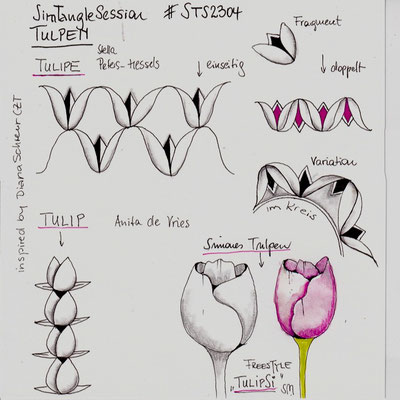 SimTangleSession # STS2304
TULPEN
Stella
Peters-Hessels
TULIPE
einseitig
Fragment
doppelt
Variation
im Kreis
inspired by Diana Schreur CZT
TULIP
Anita de Vries
Simones Tulpen
FREESTYLE
"TULIPSi"
SM